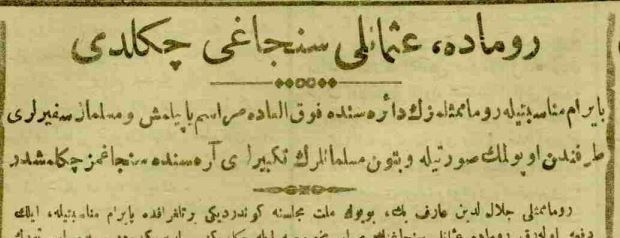 روماده، عثمانلی سنجاغی چكلدی
بایرام مناسبتیله روما ممثلمزك دائره سنده فوق العاده مراسم یاپیلمش و مسلمان سفیرلری
طرفندن اوپولمك صورتیله و بتون مسلمانلرك تكبیرلری آره سنده سنجاغمز چكلمشدر
روما ممثلی جلال الدین عارف بك، بویوك ملت مجلسنه كوندردیكی بر تلغرافده بایرام مناسبتیله، ایلك